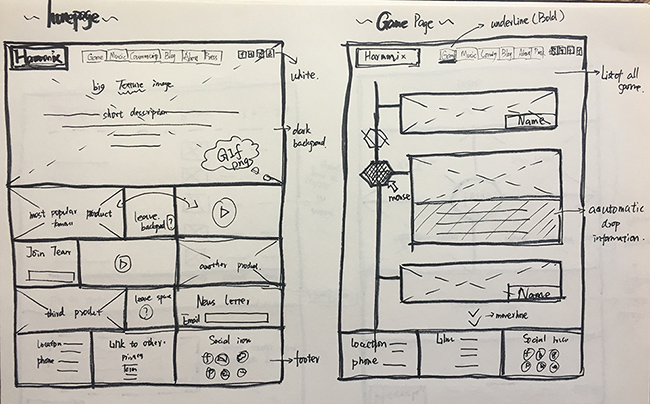 ~ homepage ~
Harmonix
Game Music Community Blog About Press
white.
big Texture image
short description
dark
backgroud
Gif
png
most popular product
leave
backgroud
?
Join Team
another product.
third product
leave space
?
News Letter
Email
Location
phone
Link to other.
privacy
Team
Social icon
footer
~ Game Page ~
underline (Bold)
Harmonix
Game Music Blog About
List of all
game.
Name
mouse
aautomatic
drop
information.
Name
Location
phone
Social